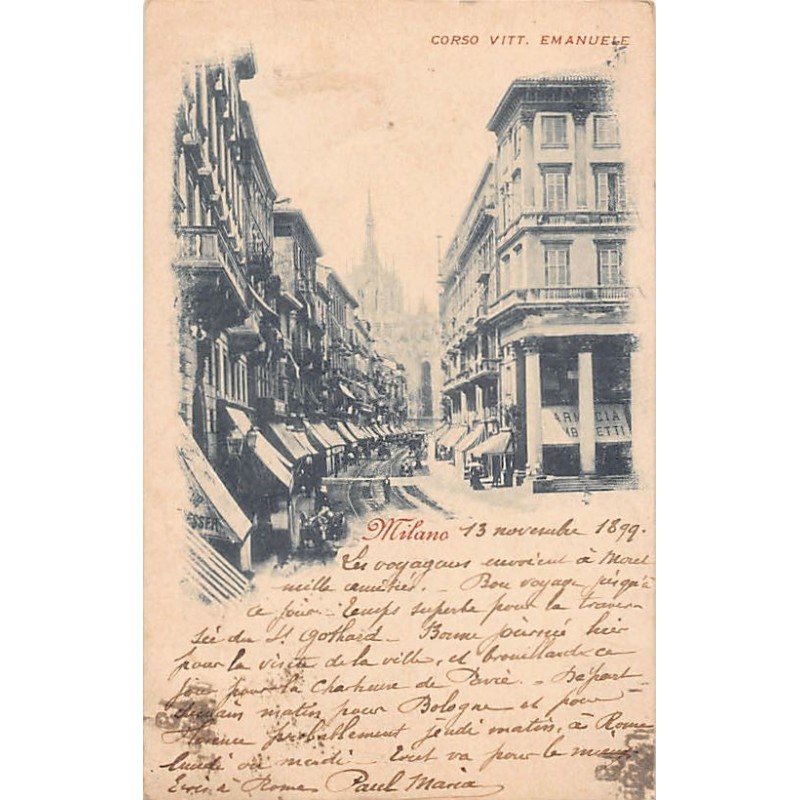 CORSO VITT. EMANUELE
ARMACIA
ETTI
Milano 13 novembre 1899.
Les voyageurs envoient à
mille amitiés. - Bon voyage jusqu'à
ce jour. - Temps superbe pour la traver-
sée du St Gothard - Bonne journée hier
pour la visite de la ville, et brouillard ce
jour pour la Chartreuse de Pavie. - Départ
demain matin pour Bologne et pour
Florence probablement jeudi matin, à Rome
lundi ou mardi - Tout va pour le mieux
Ecris à Rome Paul Maria